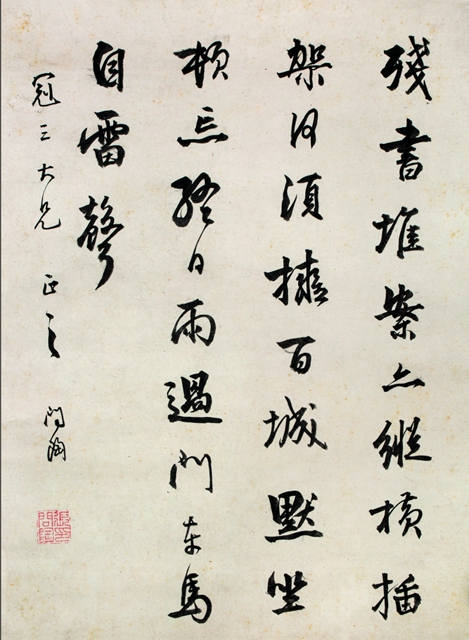 殘書堆案上縱橫插
架何須擁百城默坐
頓忘終日雨過門車馬
自雷聲
冠三大兄 正之 問陶